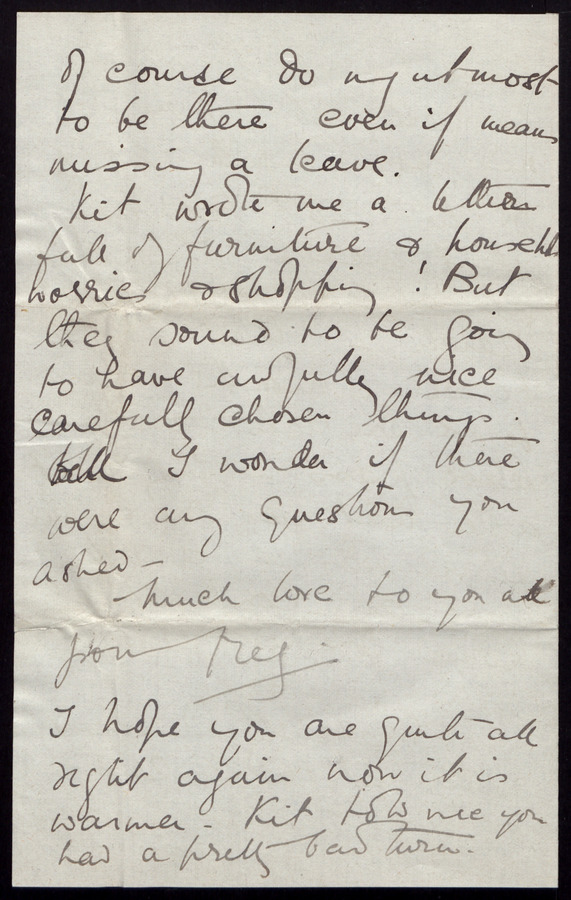 of course do my utmost
to be there even if means
missing a leave.
Kit wrote me a letter
full of furniture & househld
worries & shopping! But
they sound to be going
to have awfully nice
carefully chosen things.
I wonder if there
were any questions you
asked –
Much love to you all
from
I hope you are quite all
right again now it is
warmer. Kit told me you
had a pretty bad turn.